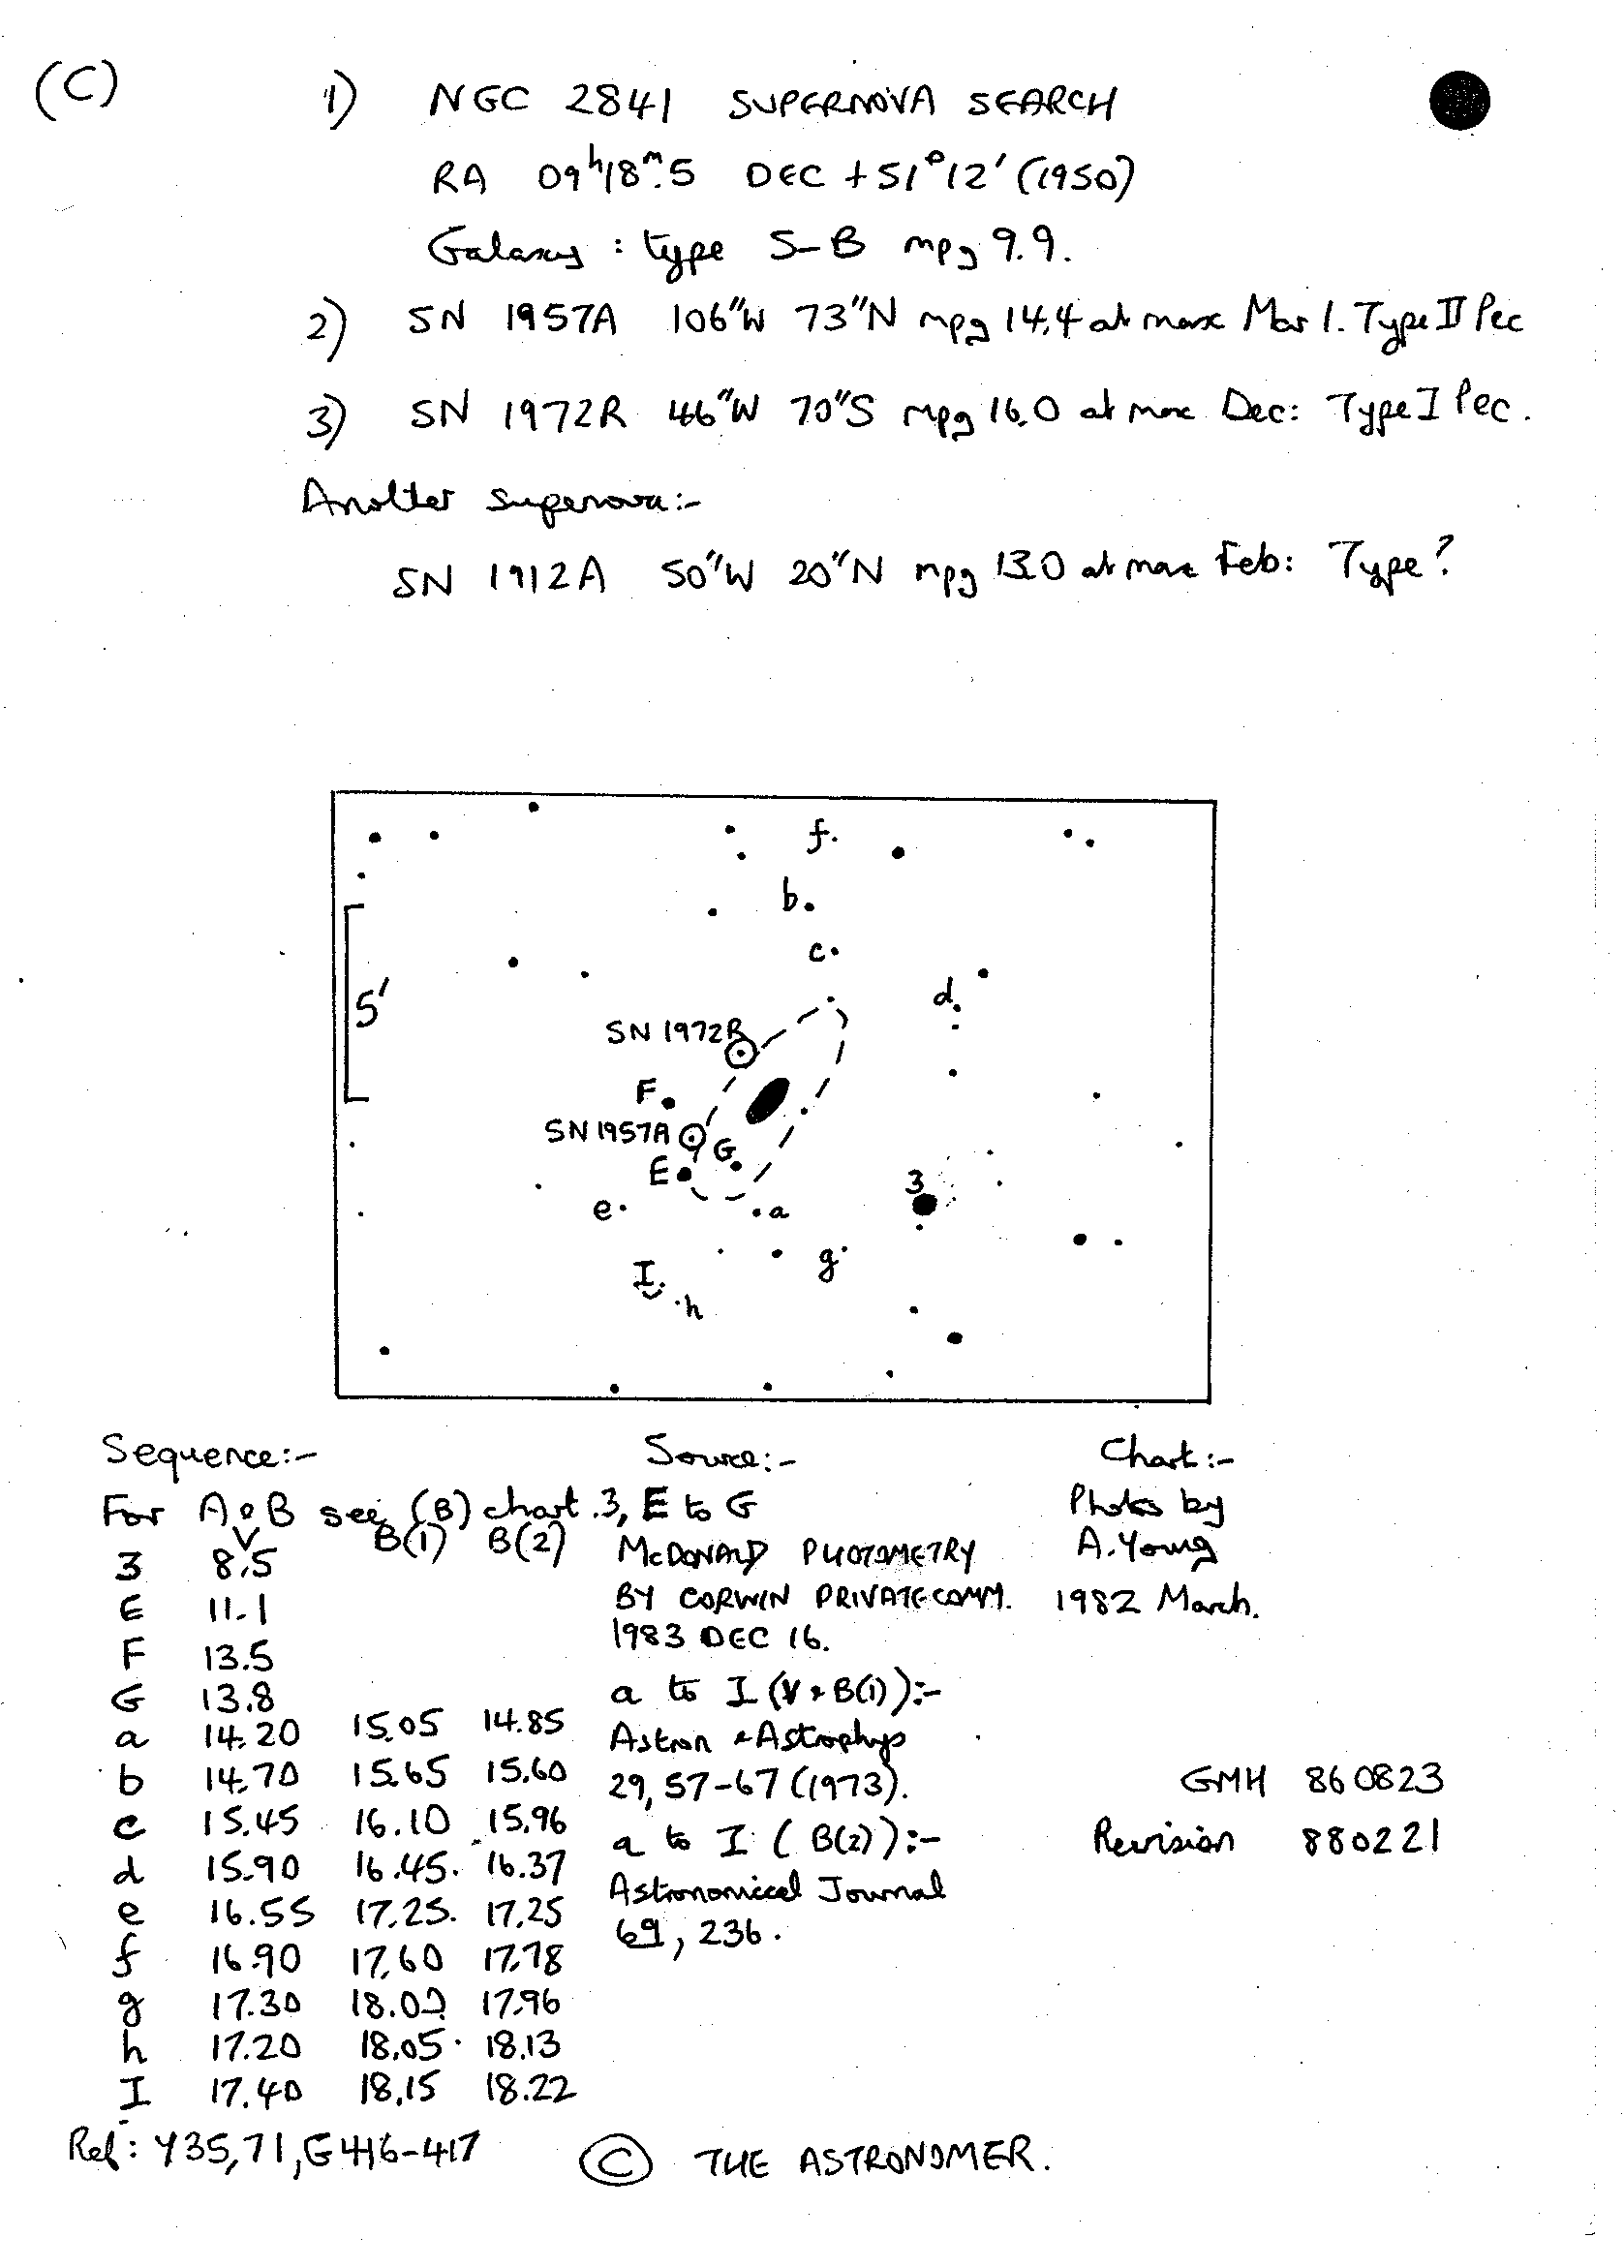 (C)
1) NGC 2841 SUPERNOVA SEARCH
RA 09h18m.5 DEC +51°12′ (1950)
Galaxy : type S-B mpg 9.9.
2) SN 1957A 106″W 73″N mpg 14.4 at max Mar 1. Type II Pec
3) SN 1972R 46″W 70″S mpg 16.0 at max Dec: Type I Pec.
Another supernova:-
SN 1912A 50″W 20″N mpg 13.0 at max Feb: Type?
f
b
c
5′
d
SN 1972R
F
SN 1957A
G
E
3
e
a
g
I
h
Sequence:-
For A & B see (B) chart.
V B(1) B(2)
3 8.5
E 11.1
F 13.5
G 13.8
a 14.20 15.05 14.85
b 14.70 15.65 15.60
c 15.45 16.10 15.96
d 15.90 16.45 16.37
e 16.55 17.25 17.25
f 16.90 17.60 17.78
g 17.30 18.00 17.96
h 17.20 18.05 18.13
I 17.40 18.15 18.22
Source:-
3, E to G
McDONALD PHOTOMETRY
BY CORWIN PRIVATE COMM.
1983 DEC 16.
a to I (V & B(1)):-
Astron & Astrophys
29, 57-67 (1973).
a to I (B(2)):-
Astronomical Journal
69, 236.
Chart:-
Photos by
A. Young
1982 March.
GMH 860823
Revision 880221
Ref: Y35, 71, G416-417
© THE ASTRONOMER.